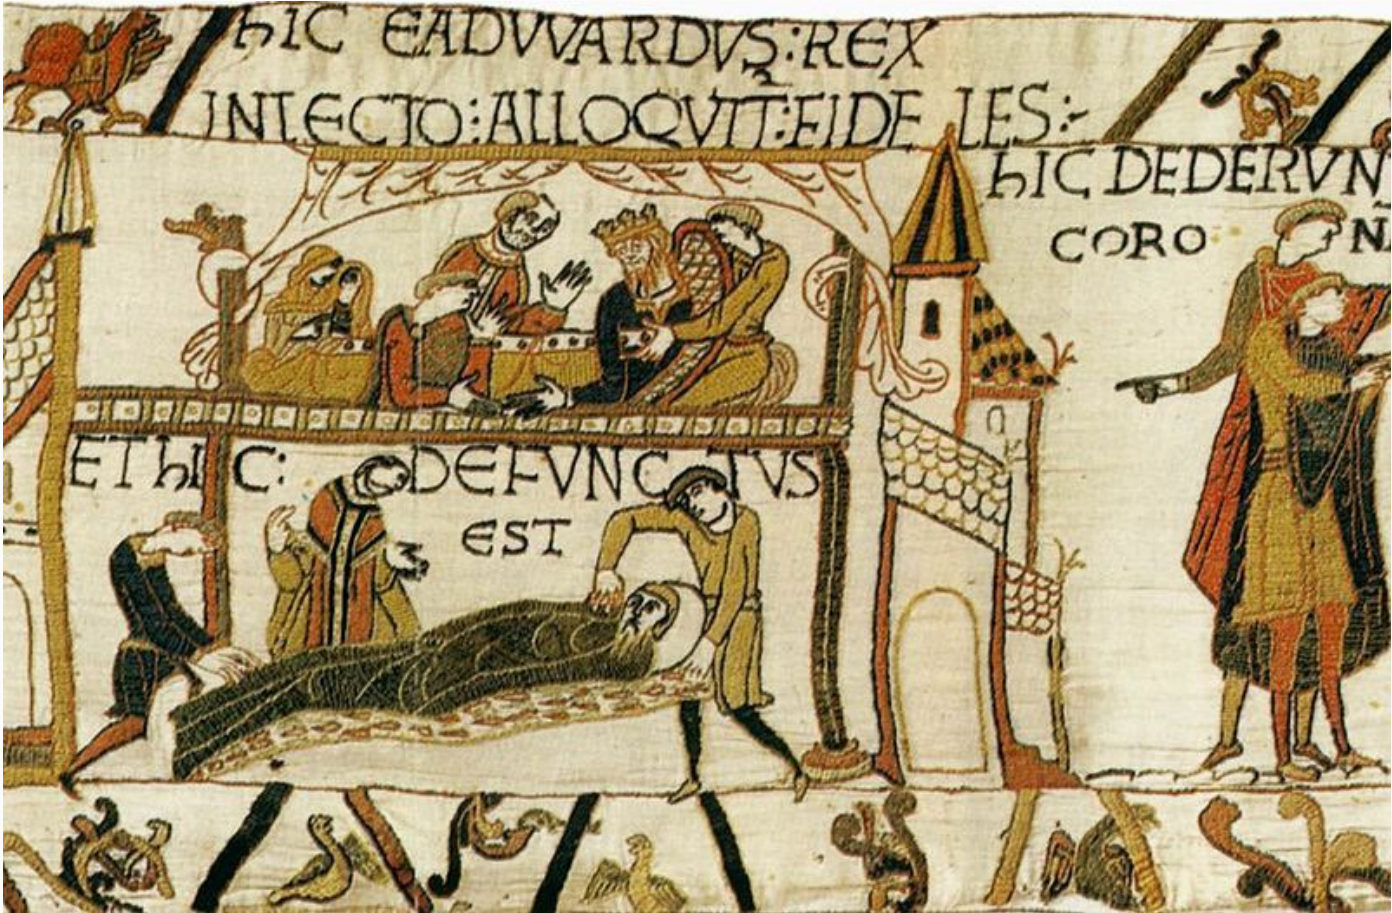 hIC EADVVARDVS:REX
INLECTO:ALLOQVIT:FIDELES:
hIC DEDERVN
CORO N
ET hIC: DEFVNCTVS
EST